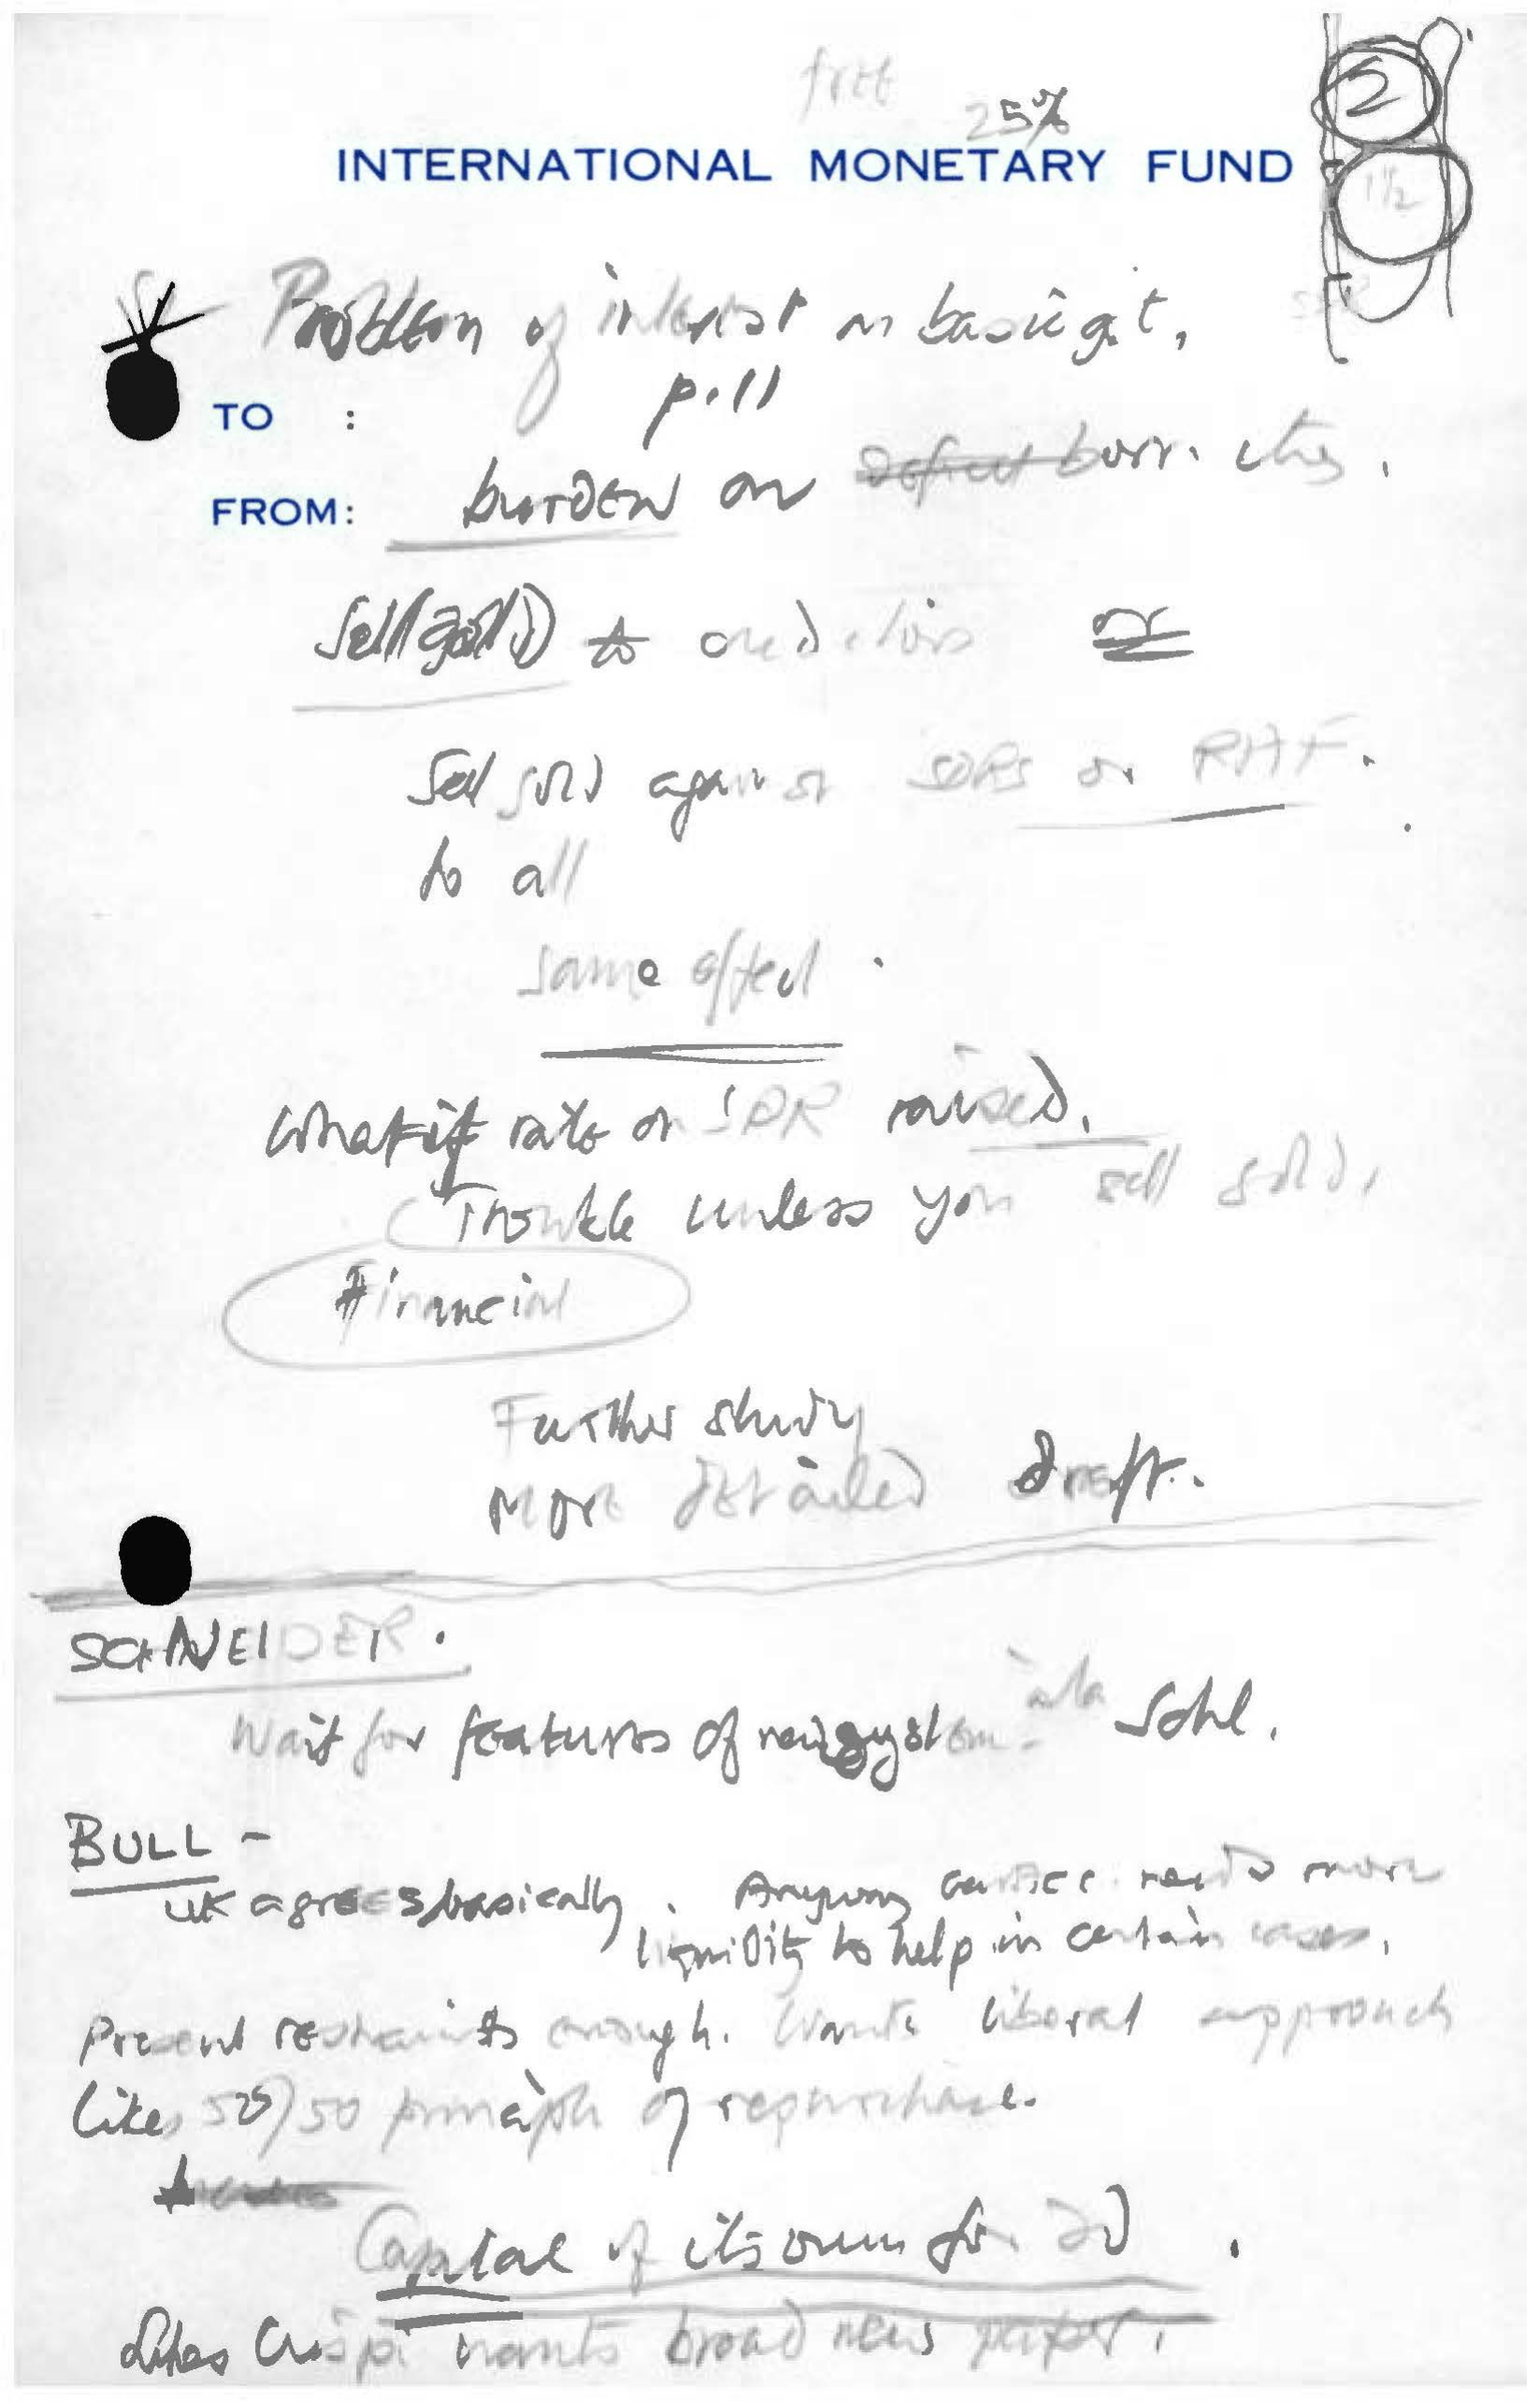 free
25%
2
INTERNATIONAL MONETARY FUND
1½
Problem of interest on
TO :
FROM: burden on borr. ctries.
Sell (gold) to creditors or
Sell gold against SDRs or
to all
same effect.
What if rate on SDR raised.
(Trouble unless you sell gold.
Financial
Further study
More detailed draft.
SCHNEIDER.
Wait for features of new system à la Sohl.
BULL -
UK agrees basically. Anyway need more
liquidity to help in certain cases.
Present restraints enough. Wants liberal approach
Likes 50/50 principle of repurchase.
Capital of its own for
Likes Crispi wants broad new paper.